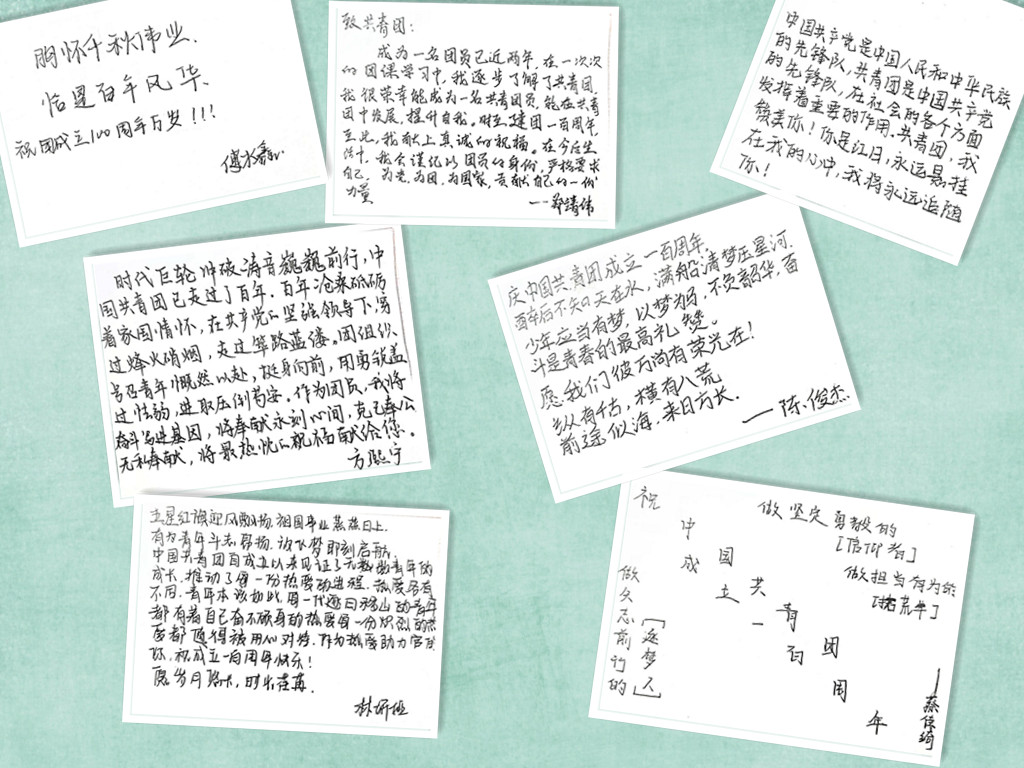 胸怀千秋伟业、
恰是百年风华、
祝团成立100周年万岁!!!
致共青团:
成为一名团员已近两年,在一次次
的团课学习中,我逐步了解了共青团,
我很荣幸能成为一名共青团员,能在共青
团中发展,提升自我。时立建团一百周年,
在此,我献上真诚的祝福。在今后生
活中,我会谨记以团员的身份,严格要求
自己,为党,为团,为国家,贡献自己的一份
力量
——郑靖伟
中国共产党是中国人民和中华民族
的先锋队,共青团是中国共产党
的先锋队,在社会的各个方面
发挥着重要的作用.共青团,我
赞美你!你是红日,永远悬挂
在我的心中,我将永远追随
你!
时代巨轮冲破涛音巍巍前行,中
国共青团已走过了百年.百年沧桑砥砺
着家国情怀,在共产党的坚强领导下,穿
过烽火硝烟,走过筚路蓝缕。团组织
号召青年慨然以赴,挺身向前,用勇锐盖
过怯弱,进取压倒苟安。作为团员,我将
奋斗写进基因,将奉献永刻心间,克己奉公
无私奉献,将最热忱的祝福献给您.
方熙宁
庆中国共青团成立一百周年,
醉后不知天在水,满船清梦压星河.
少年应当有梦,以梦为马,不负韶华,奋
斗是青春的最高礼赞。
愿我们彼方尚有荣光在!
纵有千古,横有八荒
前途似海,来日方长.
——陈俊杰
五星红旗迎风飘扬,祖国事业蒸蒸日上.
有为青年斗志昂扬,放飞梦即刻启航.
中国共青团自成立以来见证了无数的青年的
成长,推动了每一份热爱的进程.热爱各有
不同,青年本该如此.每一代逐日移山的青年
都有着自己奋不顾身的热爱.每一份炽烈的热
爱都值得被用心对待.作为热爱助力官的
你,祝成立一百周年快乐!
愿岁月
林妍
祝中国共青团
成立一百周年
做坚定勇毅的
[信仰者]
做担当有为的
[拓荒牛]
做矢志前行的
[逐梦人]
——蔡佳绮